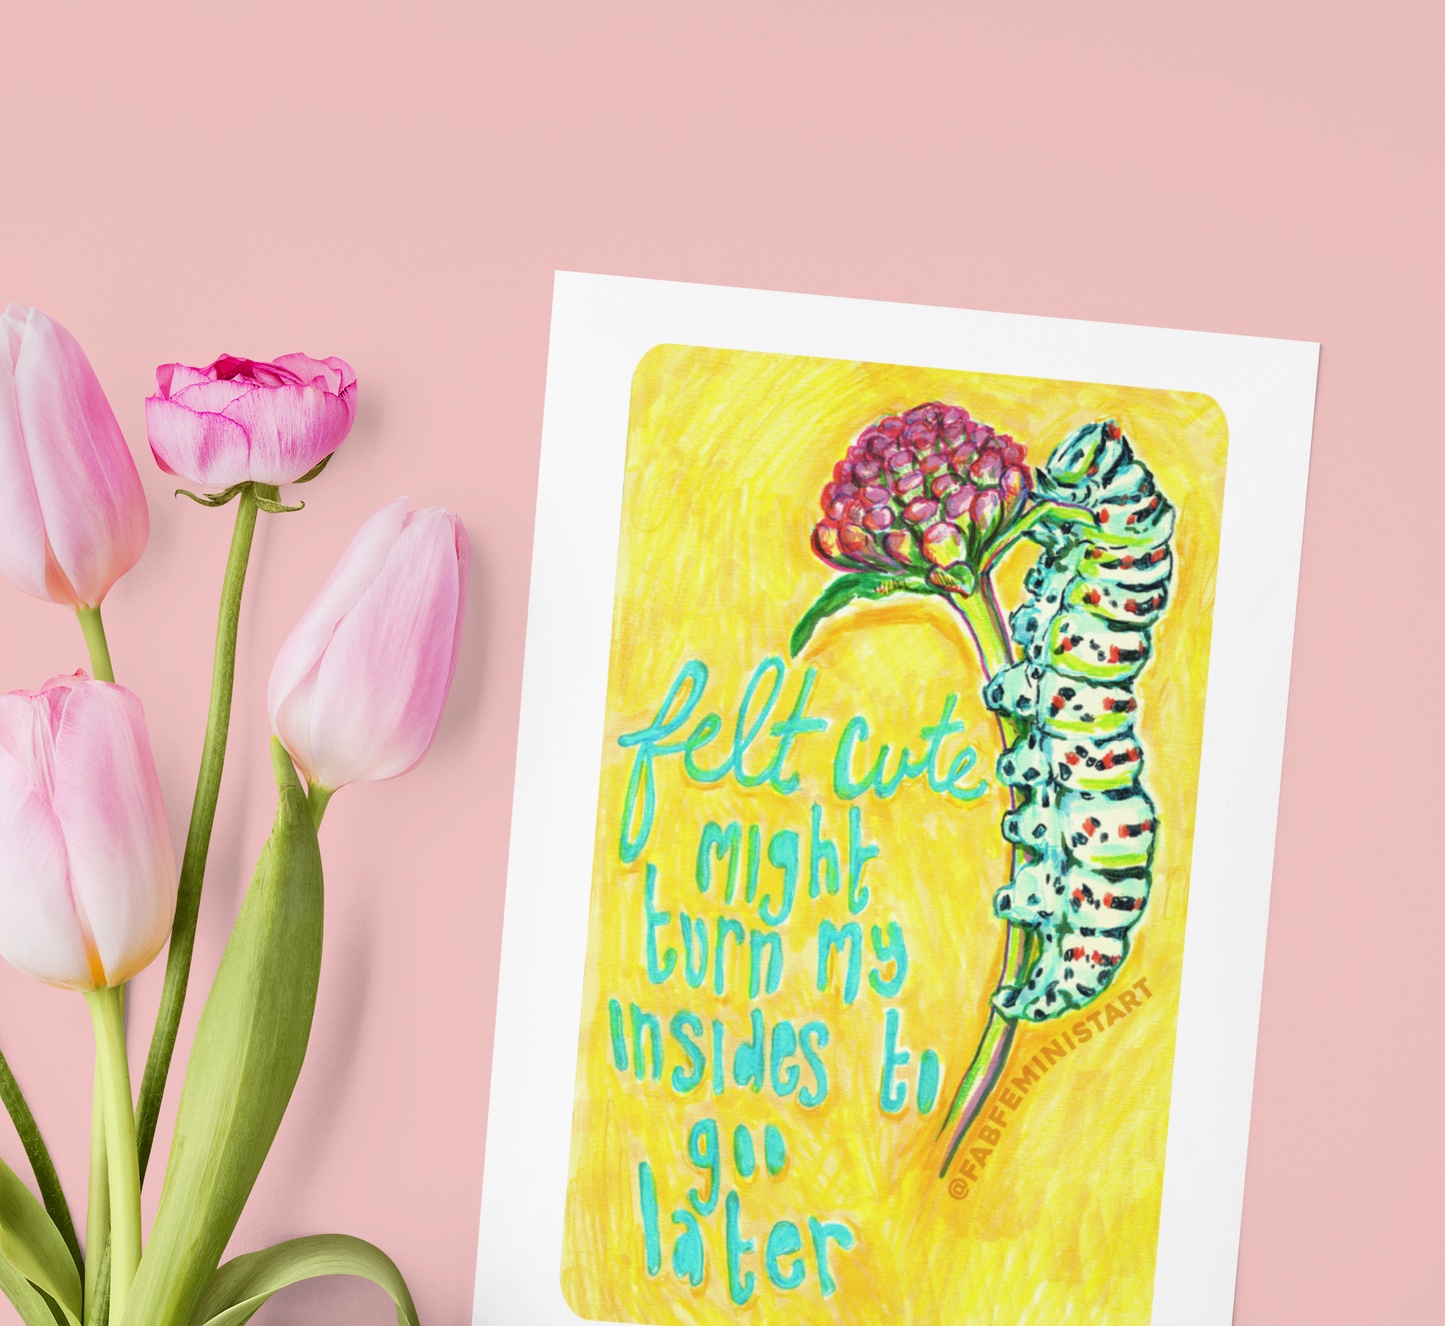 felt cute
might
turn my
insides to
goo
later
@FABFEMINISTART